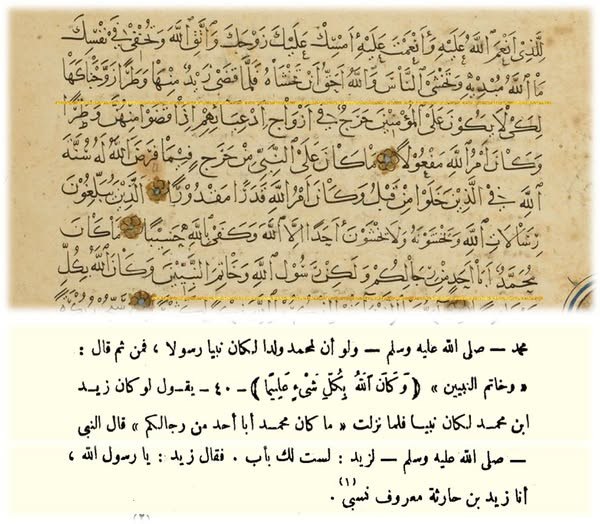 لِلَّذِي أَنْعَمَ اللَّهُ عَلَيْهِ وَأَنْعَمْتَ عَلَيْهِ أَمْسِكْ عَلَيْكَ زَوْجَكَ وَاتَّقِ اللَّهَ وَتُخْفِي فِي نَفْسِكَ
مَا اللَّهُ مُبْدِيهِ وَتَخْشَى النَّاسَ وَاللَّهُ أَحَقُّ أَنْ تَخْشَاهُ فَلَمَّا قَضَى زَيْدٌ مِنْهَا وَطَرًا زَوَّجْنَاكَهَا
لِكَيْ لَا يَكُونَ عَلَى الْمُؤْمِنِينَ حَرَجٌ فِي أَزْوَاجِ أَدْعِيَائِهِمْ إِذَا قَضَوْا مِنْهُنَّ وَطَرًا
وَكَانَ أَمْرُ اللَّهِ مَفْعُولًا مَا كَانَ عَلَى النَّبِيِّ مِنْ حَرَجٍ فِيمَا فَرَضَ اللَّهُ لَهُ سُنَّةَ
اللَّهِ فِي الَّذِينَ خَلَوْا مِنْ قَبْلُ وَكَانَ أَمْرُ اللَّهِ قَدَرًا مَقْدُورًا الَّذِينَ يُبَلِّغُونَ
رِسَالَاتِ اللَّهِ وَيَخْشَوْنَهُ وَلَا يَخْشَوْنَ أَحَدًا إِلَّا اللَّهَ وَكَفَى بِاللَّهِ حَسِيبًا مَا كَانَ
مُحَمَّدٌ أَبَا أَحَدٍ مِنْ رِجَالِكُمْ وَلَكِنْ رَسُولَ اللَّهِ وَخَاتِمَ النَّبِيِّينَ وَكَانَ اللَّهُ بِكُلِّ
محمد — صلى الله عليه وسلم — ولو أن لمحمد ولدا لكان نبيا رسولا ، فمن ثم قال :
« وخاتم النبيين » ﴿ وَكَانَ ٱللَّهُ بِكُلِّ شَىْءٍ عَلِيمًا ﴾ - ٤٠ - يقول لو كان زيد
ابن محمد لكان نبيا فلما نزلت « ما كان محمد أبا أحد من رجالكم » قال النبى
— صلى الله عليه وسلم — لزيد : لست لك بأب . فقال زيد : يا رسول الله ،
أنا زيد بن حارثة معروف نسبى (١) .